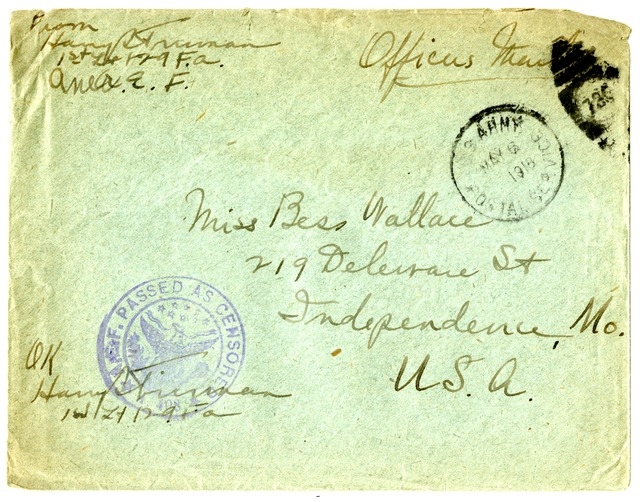 From
Harry S Truman
1st Lt 129 F.a.
Am. E. F.
Officers Mail
U.S. ARMY POSTAL SERVICE
MAY 6
1918
780
Miss Bess Wallace
219 Deleware St
Independence, Mo.
U.S.A.
A.E.F. PASSED AS CENSORED
OK
Harry S Truman
1st Lt 129 Fa